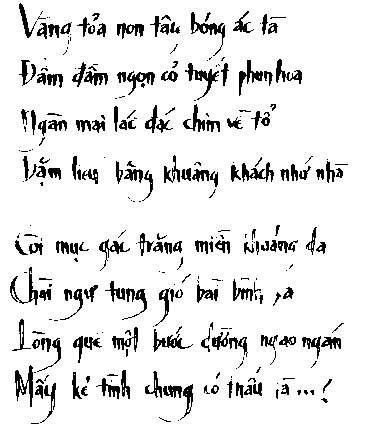 Vàng tỏa non tây bóng ác tà
Đầm đầm ngọn cỏ tuyết phun hoa
Ngàn mai lác đác chim về tổ
Dặm liễu bâng khuâng khách nhớ nhà
Còi mục gác trăng miền khoảng dã
Chài ngư tung gió bãi bình sa
Lòng quê một bước dường ngao ngán
Mấy kẻ tình chung có thấu là ... !